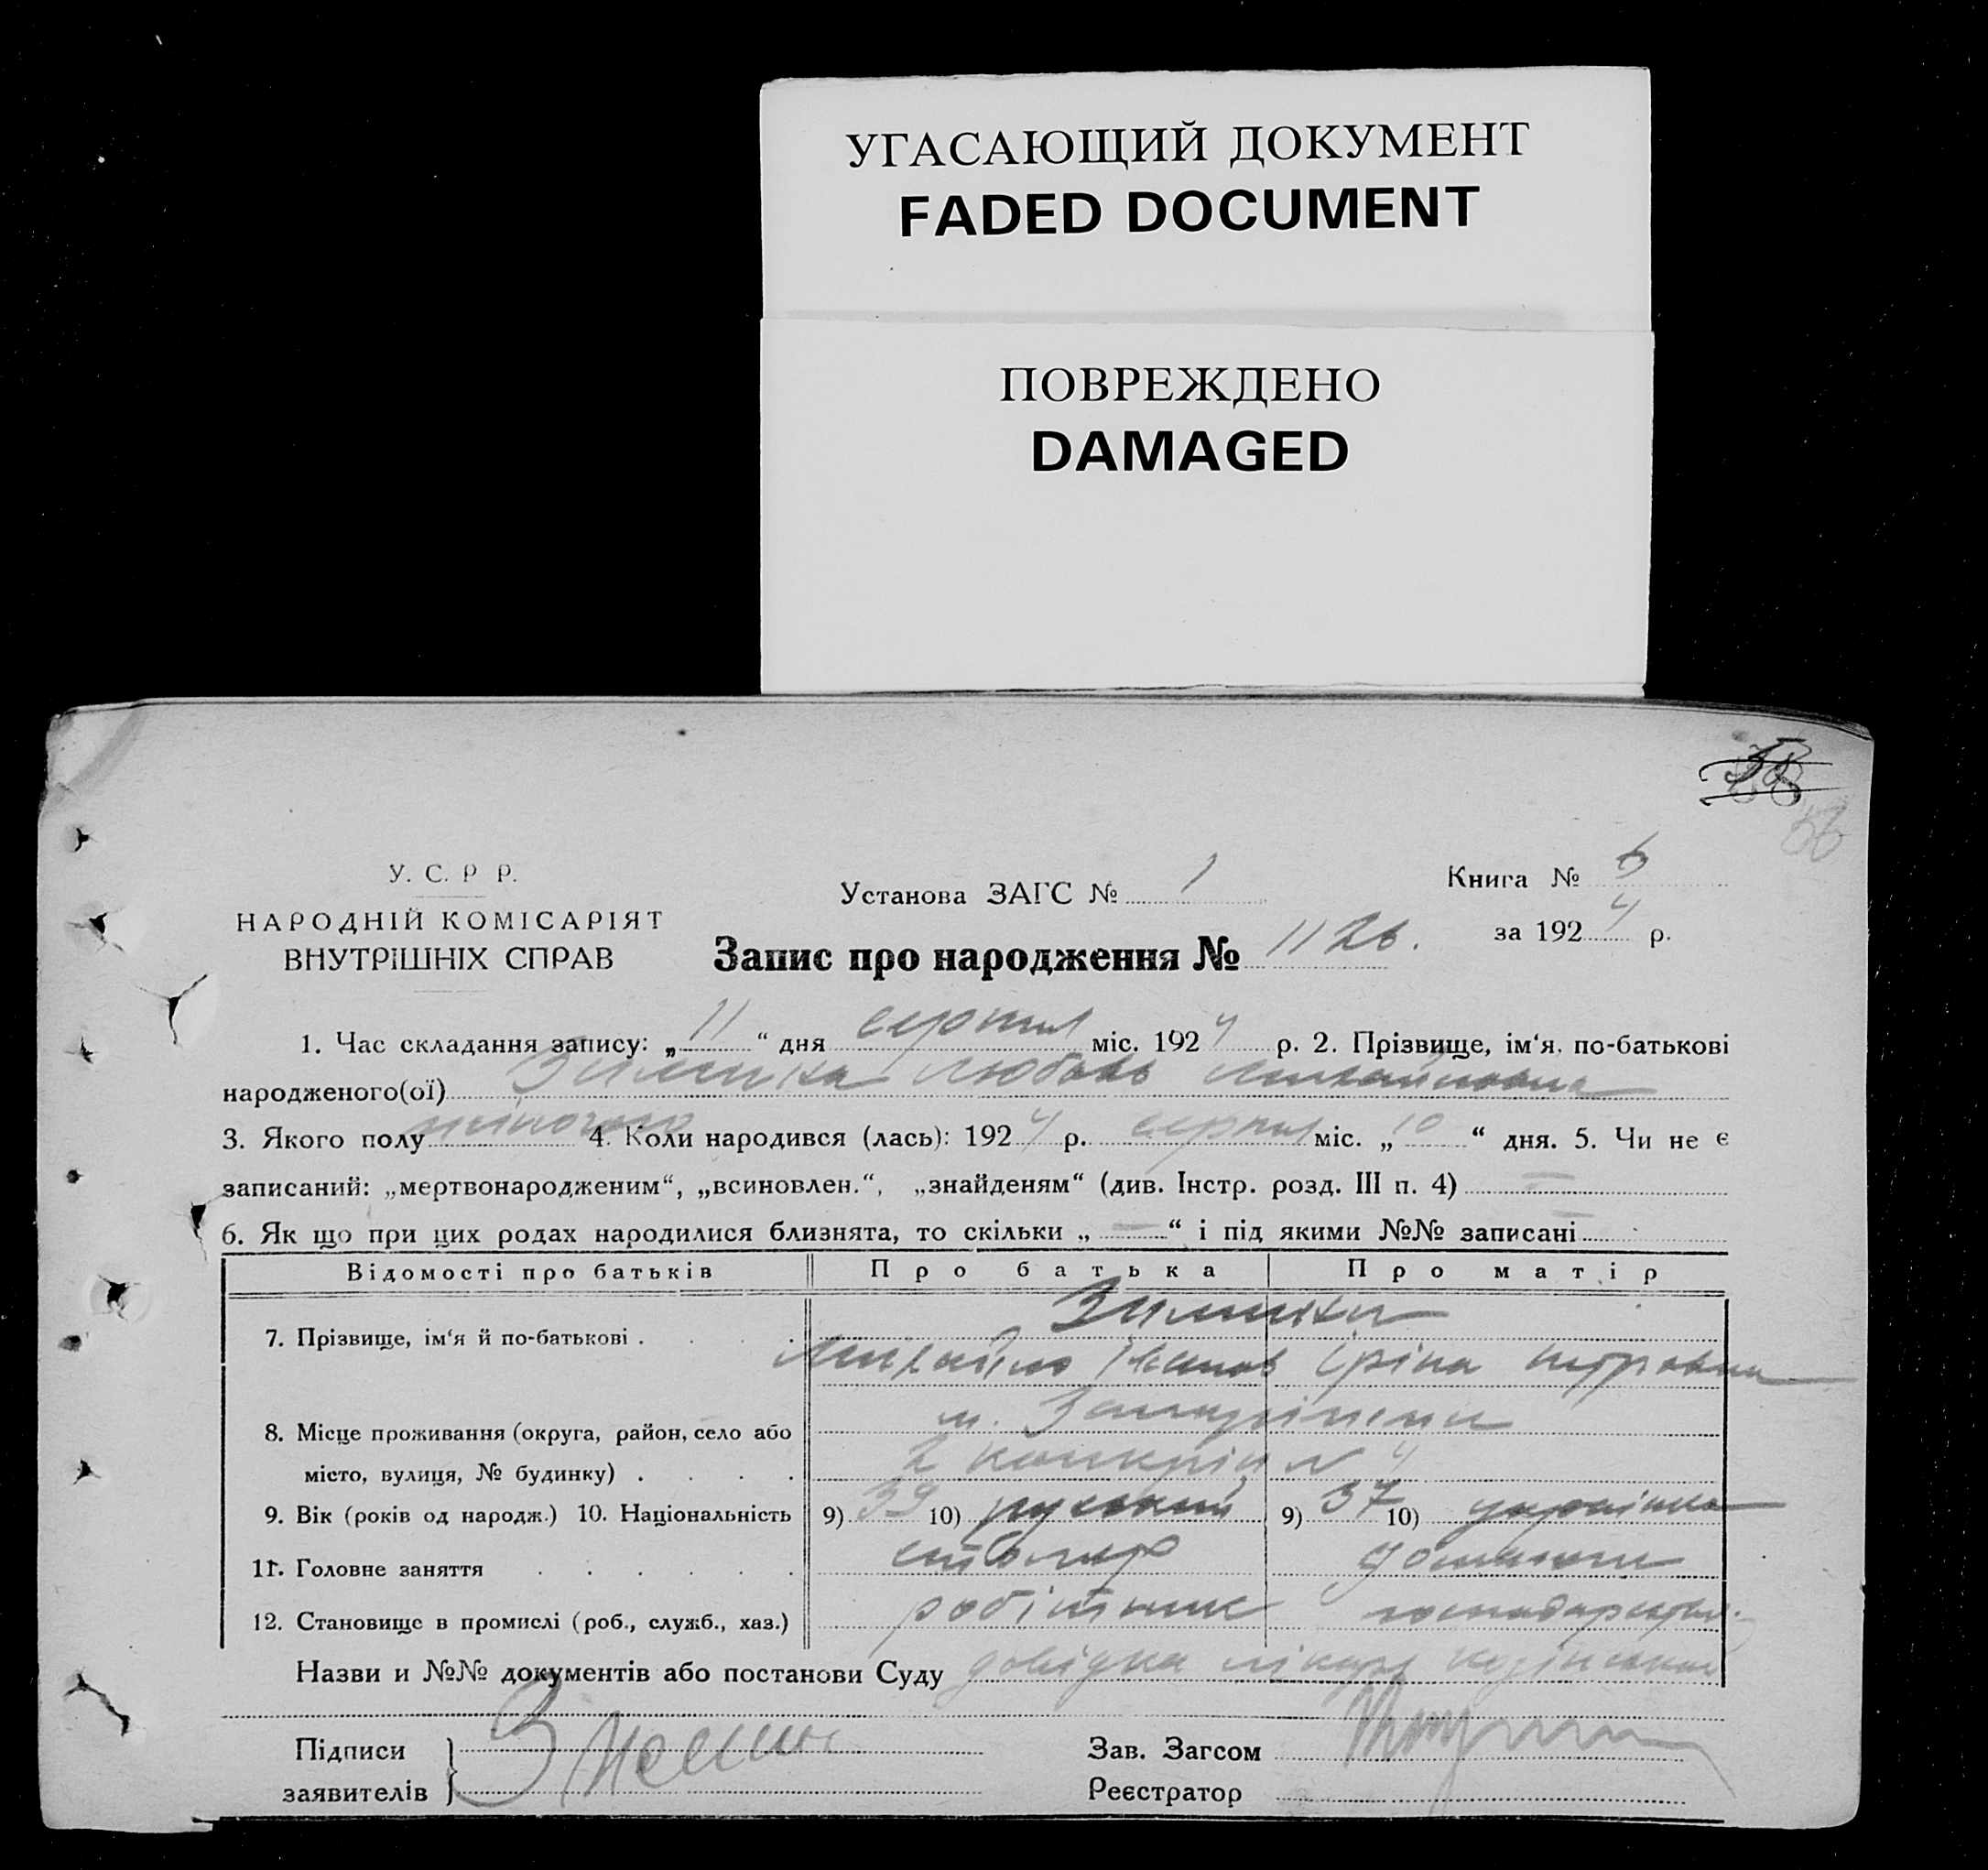 УГАСАЮЩИЙ ДОКУМЕНТ
FADED DOCUMENT
ПОВРЕЖДЕНО
DAMAGED
У. С. Р Р.
НАРОДНІЙ КОМІСАРІЯТ
ВНУТРІШНІХ СПРАВ
Установа ЗАГС № 1
Книга №
за 1924 р.
Запис про народження № 1126.
1. Час складання запису: „11“ дня серпня міс. 1924 р. 2. Прізвище, ім'я, по-батькові
народженого(ої) Любовь Михайловна
3. Якого полу жіночого 4. Коли народився (лась): 1924 р. серпня міс. „10“ дня. 5. Чи не є
записаний: „мертвонародженим“, „всиновлен.“, „знайденям“ (див. Інстр. розд. III п. 4) —
6. Як що при цих родах народилися близнята, то скільки „—“ і під якими №№ записані —
Відомості про батьків Про батька Про матір
7. Прізвище, ім'я й по-батькові .
Михайло Іванов Іріна Петровна
8. Місце проживання (округа, район, село або
місто, вулиця, № будинку) . 2 № 4
9. Вік (років од народж.) 10. Національність 9) 39 10) руський 9) 37 10) українка
11. Головне заняття столяр домашнє
12. Становище в промислі (роб., служб., хаз.) робітник господарство
Назви и №№ документів або постанови Суду довідка лікаря
Підписи
заявителів
Зав. Загсом
Реєстратор